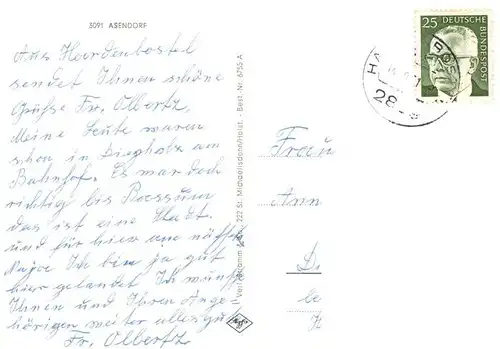 3091 ASENDORF
Aus Hardenbostel
sendet Ihnen schöne
Grüsse Fr. Olbertz,
Meine Leute waren
schon in Diepholz am
Bahnhof. Es war doch
richtig bis Bassum
das ist eine Stadt.
und für hier am
Ich bin ja gut
hier gelandet Ich wünsche
Ihnen und Ihren Ange-
hörigen weiter alles gute
Fr. Olbertz
222 St. Michaelisdonn/Holst. - Best.-Nr. 6755-A
25 DEUTSCHE
BUNDESPOST
28
Frau
Ann